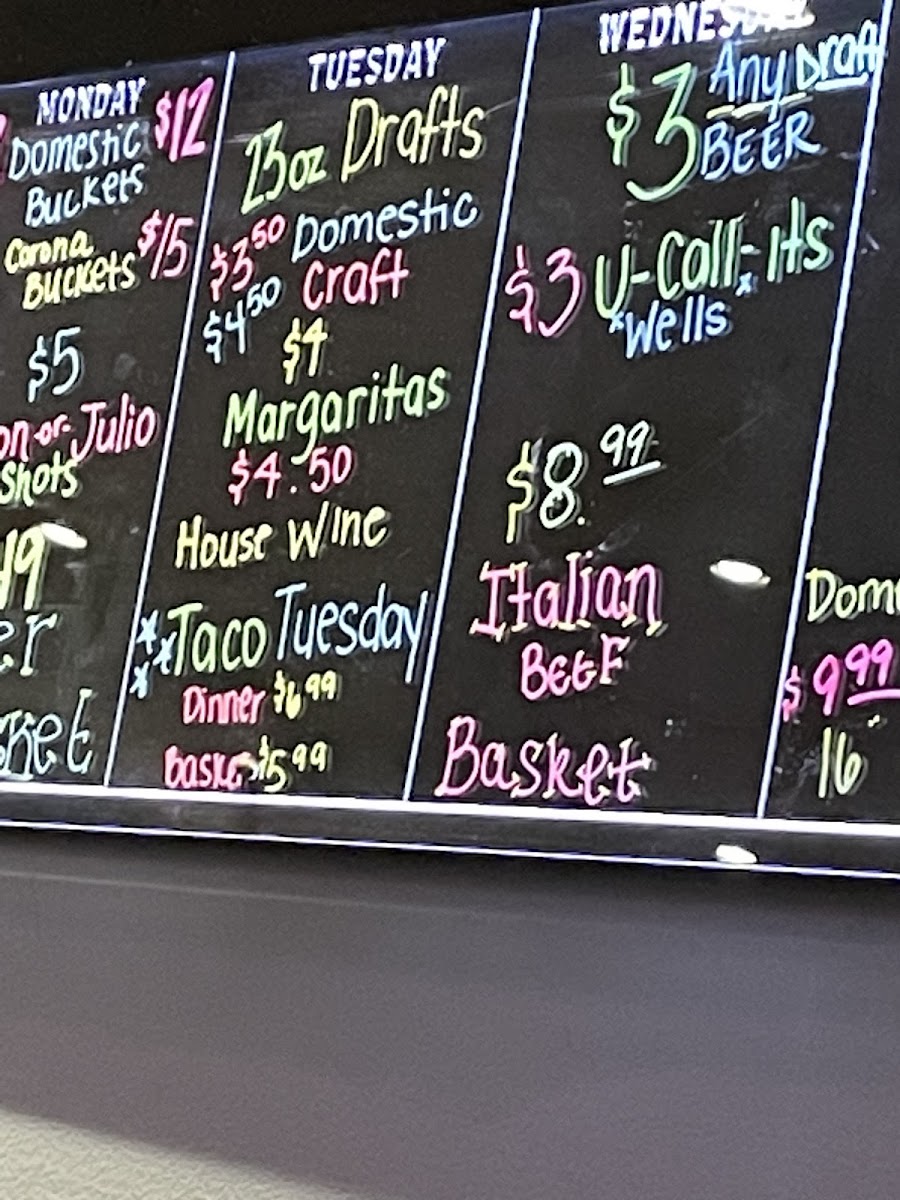 MONDAY
Domestic $12
Buckets
Corona $15
Buckets
$5
or Julio
Shots
TUESDAY
23oz Drafts
$3.50 Domestic
$4.50 Craft
$4
Margaritas
$4.50
House Wine
***Taco Tuesday
Dinner $6.99
$5.99
WEDNESDAY
$3 Any Draft
BEER
$3 U-Call-Its
*Wells*
$8.99
Italian
BEEF
Basket
$9.99
16"